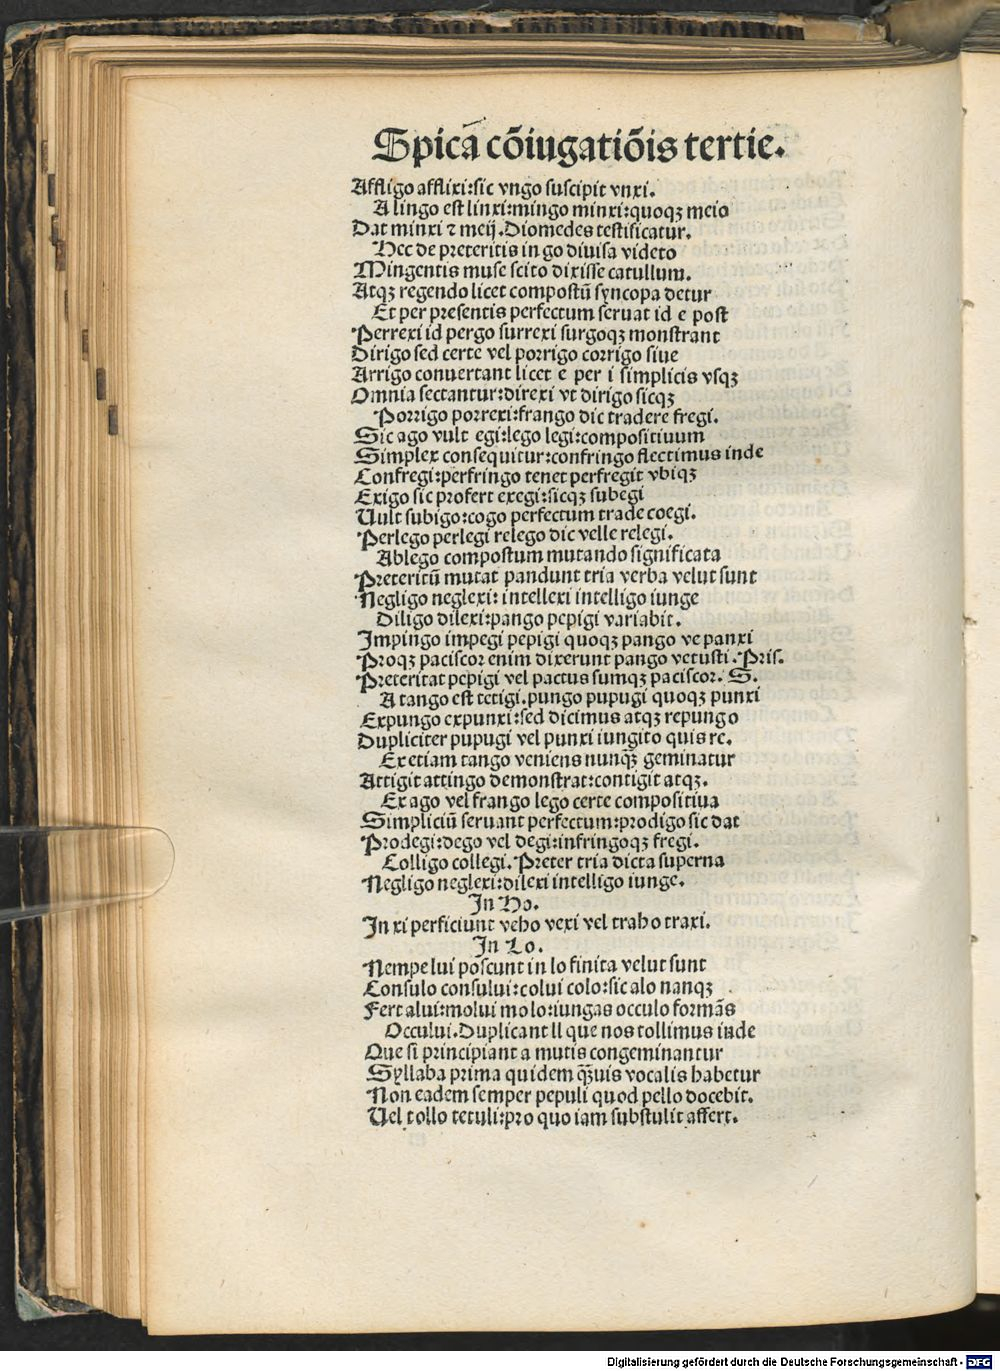 Spicā cōiugatiōis tertie.
Affligo afflixi:sic vngo suscipit vnxi.
A lingo est linxi:mingo minxi:quoqꝫ meio
Dat minxi ⁊ meij.Diomedes testificatur.
Hec de preteritis in go diuisa videto
Mingentis muse scito dixisse catullum.
Atqꝫ regendo licet compostū syncopa detur
Et per presentis perfectum seruat id e post
Perrexi id pergo surrexi surgoqꝫ monstrant
Dirigo sed certe vel porrigo corrigo siue
Arrigo conuertant licet e per i simplicis vsqꝫ
Omnia sectantur:direxi vt dirigo sicqꝫ
Porrigo porrexi:frango dic tradere fregi.
Sic ago vult egi:lego legi:compositiuum
Simplex consequitur:confringo flectimus inde
Confregi:perfringo tenet perfregit vbiqꝫ
Exigo sic profert exegi:sicqꝫ subegi
Uult subigo:cogo perfectum trade coegi.
Perlego perlegi relego dic velle relegi.
Ablego compostum mutando significata
Preteritū mutat pandunt tria verba velut sunt
Negligo neglexi: intellexi intelligo iunge
Diligo dilexi:pango pepigi variabit.
Impingo impegi pepigi quoqꝫ pango ve panxi
Proqꝫ paciscor enim dixerunt pango vetusti.Pris.
Preteritat pepigi vel pactus sumqꝫ paciscor. S.
A tango est tetigi.pungo pupugi quoqꝫ punxi
Expungo expunxi:sed dicimus atqꝫ repungo
Dupliciter pupugi vel punxi iungito quis re.
Ex etiam tango veniens nunqꝫ̄ geminatur
Attigit attingo demonstrat:contigit atqꝫ.
Ex ago vel frango lego certe compositiua
Simpliciū seruant perfectum:prodigo sic dat
Prodegi:dego vel degi:infringoqꝫ fregi.
Colligo collegi.Preter tria dicta superna
Negligo neglexi:dilexi intelligo iunge.
In Ho.
In xi perficiunt veho vexi vel traho traxi.
In Lo.
Nempe lui poscunt in lo finita velut sunt
Consulo consului:colui colo:sic alo nanqꝫ
Fert alui:molui molo:iungas occulo formās
Occului.Duplicant ll que nos tollimus inde
Que si principiant a mutis congeminantur
Syllaba prima quidem qꝫ̄uis vocalis habetur
Non eadem semper pepuli quod pello docebit.
Uel tollo tetuli:pro quo iam substulit affert.
Digitalisierung gefördert durch die Deutsche Forschungsgemeinschaft - DFG